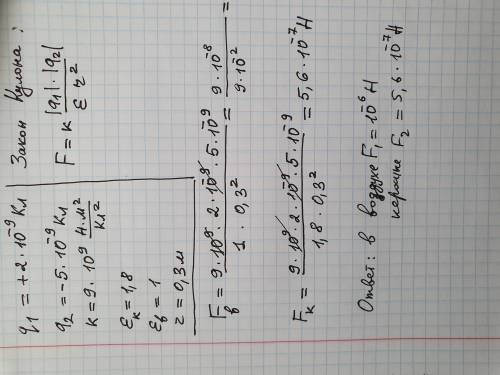 q₁ = +2·10⁻⁹ Кл
q₂ = -5·10⁻⁹ Кл
k = 9·10⁹ Н·м²/Кл²
εк = 1,8
εв = 1
r = 0,3 м
Закон Кулона:
F = k |q₁|·|q₂| / ε r²
Fв = 9·10⁹·2·10⁻⁹·5·10⁻⁹ / 1·0,3² = 9·10⁻⁸ / 9·10⁻² =
Fк = 9·10⁹·2·10⁻⁹·5·10⁻⁹ / 1,8·0,3² = 5,6·10⁻⁷ Н
Ответ: в воздухе F₁ = 10⁻⁶ Н
керосине F₂ = 5,6·10⁻⁷ Н